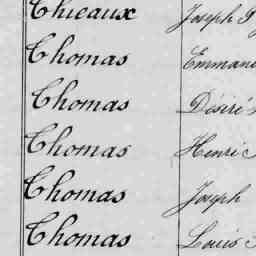 Thieaux Joseph
Thomas Emman
Thomas Désiré
Thomas Henri
Thomas Joseph
Thomas Louis